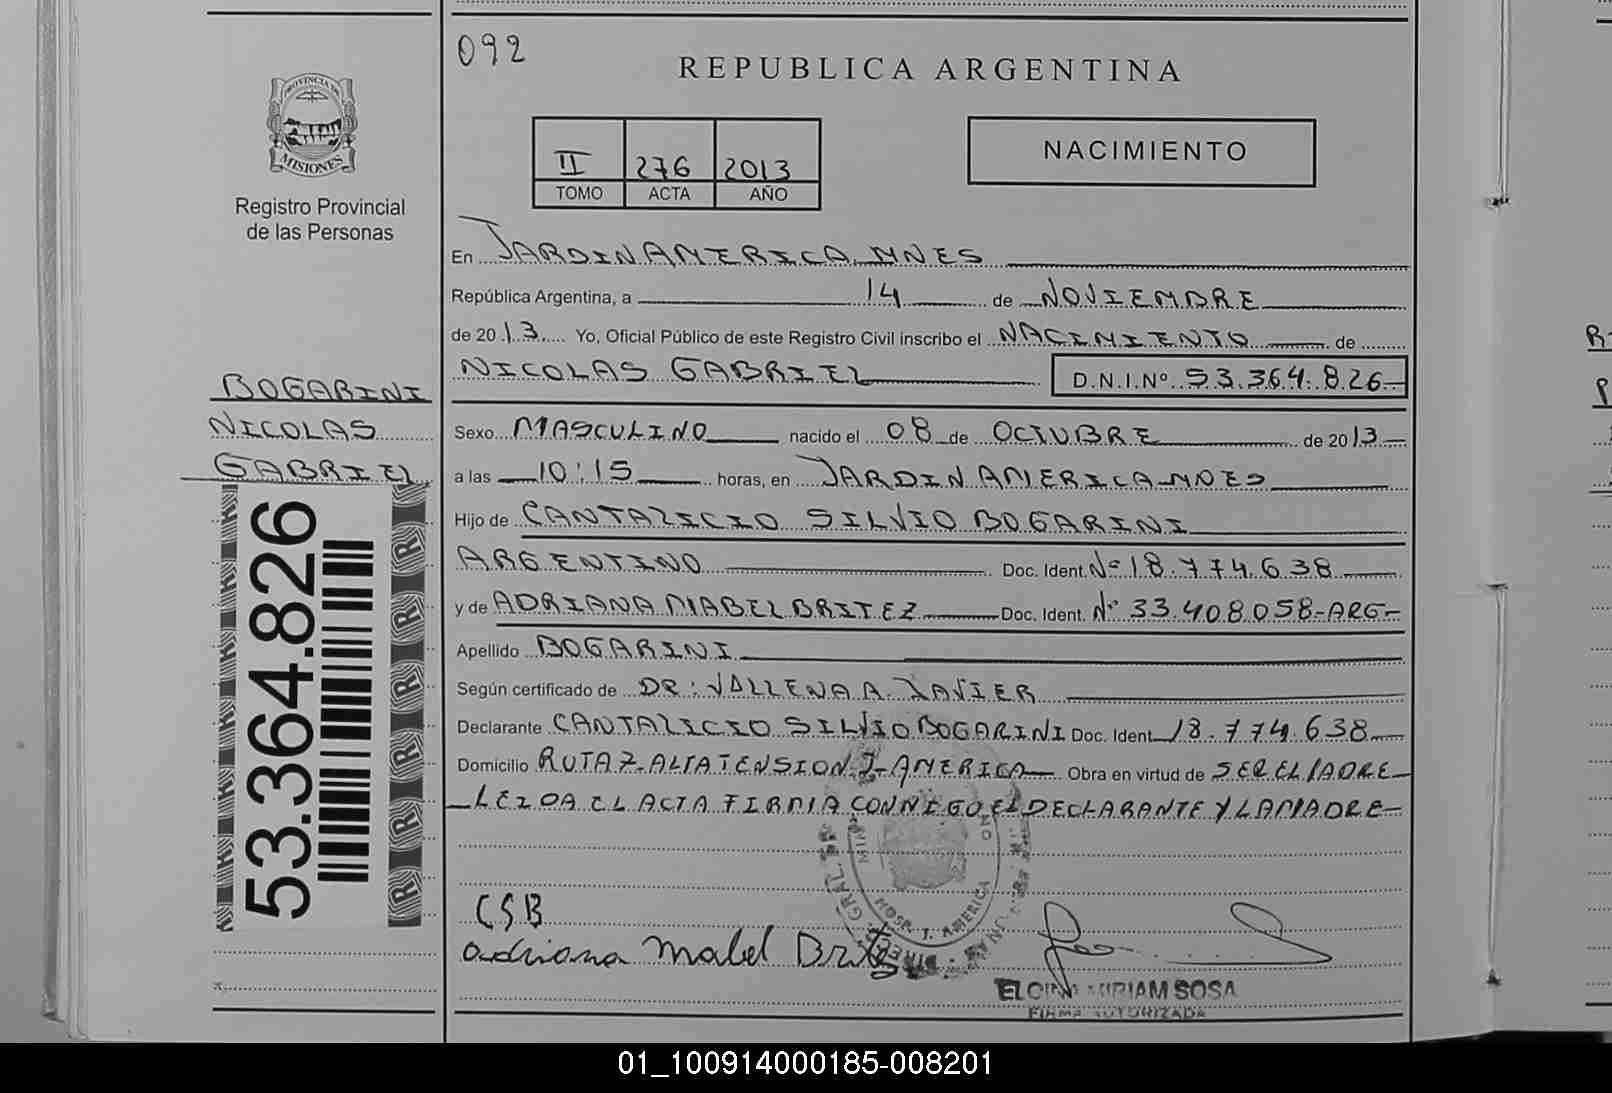 092
REPUBLICA ARGENTINA
PROVINCIA DE
MISIONES
Registro Provincial
de las Personas
II 276 2013
TOMO ACTA AÑO
NACIMIENTO
En JARDIN AMERICA MNES
República Argentina, a 14 de NOVIEMBRE
de 2013 Yo, Oficial Público de este Registro Civil inscribo el NACIMIENTO de
NICOLAS GABRIEL D.N.I.Nº 53.364.826
BOGARINI
NICOLAS
GABRIEL
53.364.826
Sexo MASCULINO nacido el 08 de OCTUBRE de 2013
a las 10:15 horas, en JARDIN AMERICA MNES
Hijo de CANTALICIO SILVIO BOGARINI
ARGENTINO Doc. Ident. Nº 18.774.638
y de ADRIANA MABEL BRITEZ Doc. Ident. Nº 33.408.058-ARG-
Apellido BOGARINI
Según certificado de DR: VALLENA A. JAVIER
Declarante CANTALICIO SILVIO BOGARINI Doc. Ident. 18.774.638
Domicilio RUTA 7-ALTA TENSION J-AMERICA Obra en virtud de SER EL PADRE
LEIDA EL ACTA FIRMA CONMIGO EL DECLARANTE Y LA MADRE
HOSP. J. AMERICA
CSB
adriana Mabel Britez
MIRIAM SOSA
FIRMA AUTORIZADA
01_100914000185-008201